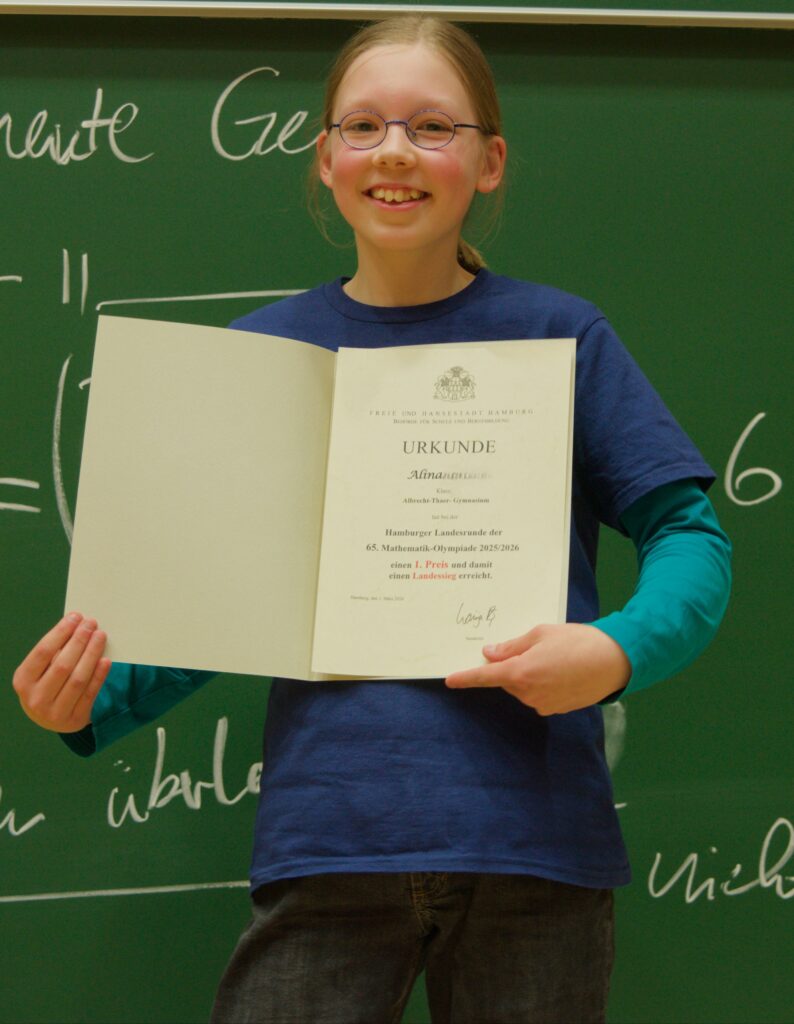 heute Ge
"
6
FREIE UND HANSESTADT HAMBURG
BEHÖRDE FÜR SCHULE UND BERUFSBILDUNG
URKUNDE
Alina
Klasse
Albrecht-Thaer- Gymnasium
hat bei der
Hamburger Landesrunde der
65. Mathematik-Olympiade 2025/2026
einen 1. Preis und damit
einen Landessieg erreicht.
überle
nich